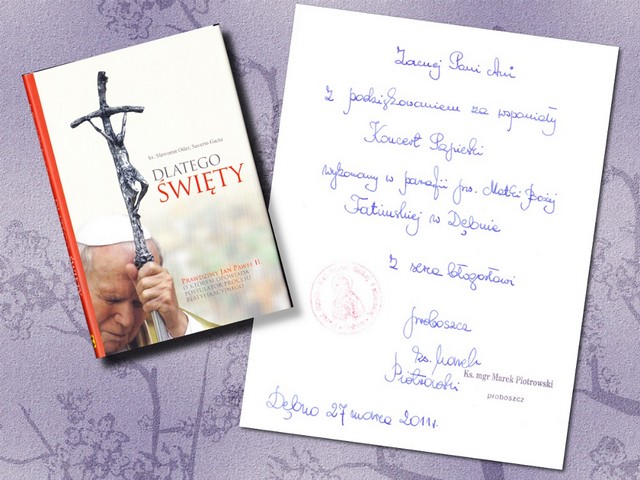 ks. Sławomir Oder, Saverio Gaeta
DLATEGO
ŚWIĘTY
PRAWDZIWY JAN PAWEŁ II,
O KTÓRYM OPOWIADA
POSTULATOR PROCESU
BEATYFIKACYJNEGO
Zacnej Pani Ani
Z podziękowaniem za wspaniały
Koncert Papieski
wykonany w parafii pw. Matki Bożej
Fatimskiej w Dębnie
Z serca błogosławi
proboszcz
ks. Marek
Piotrowski
Ks. mgr Marek Piotrowski
proboszcz
Dębno 27 marca 2011r.